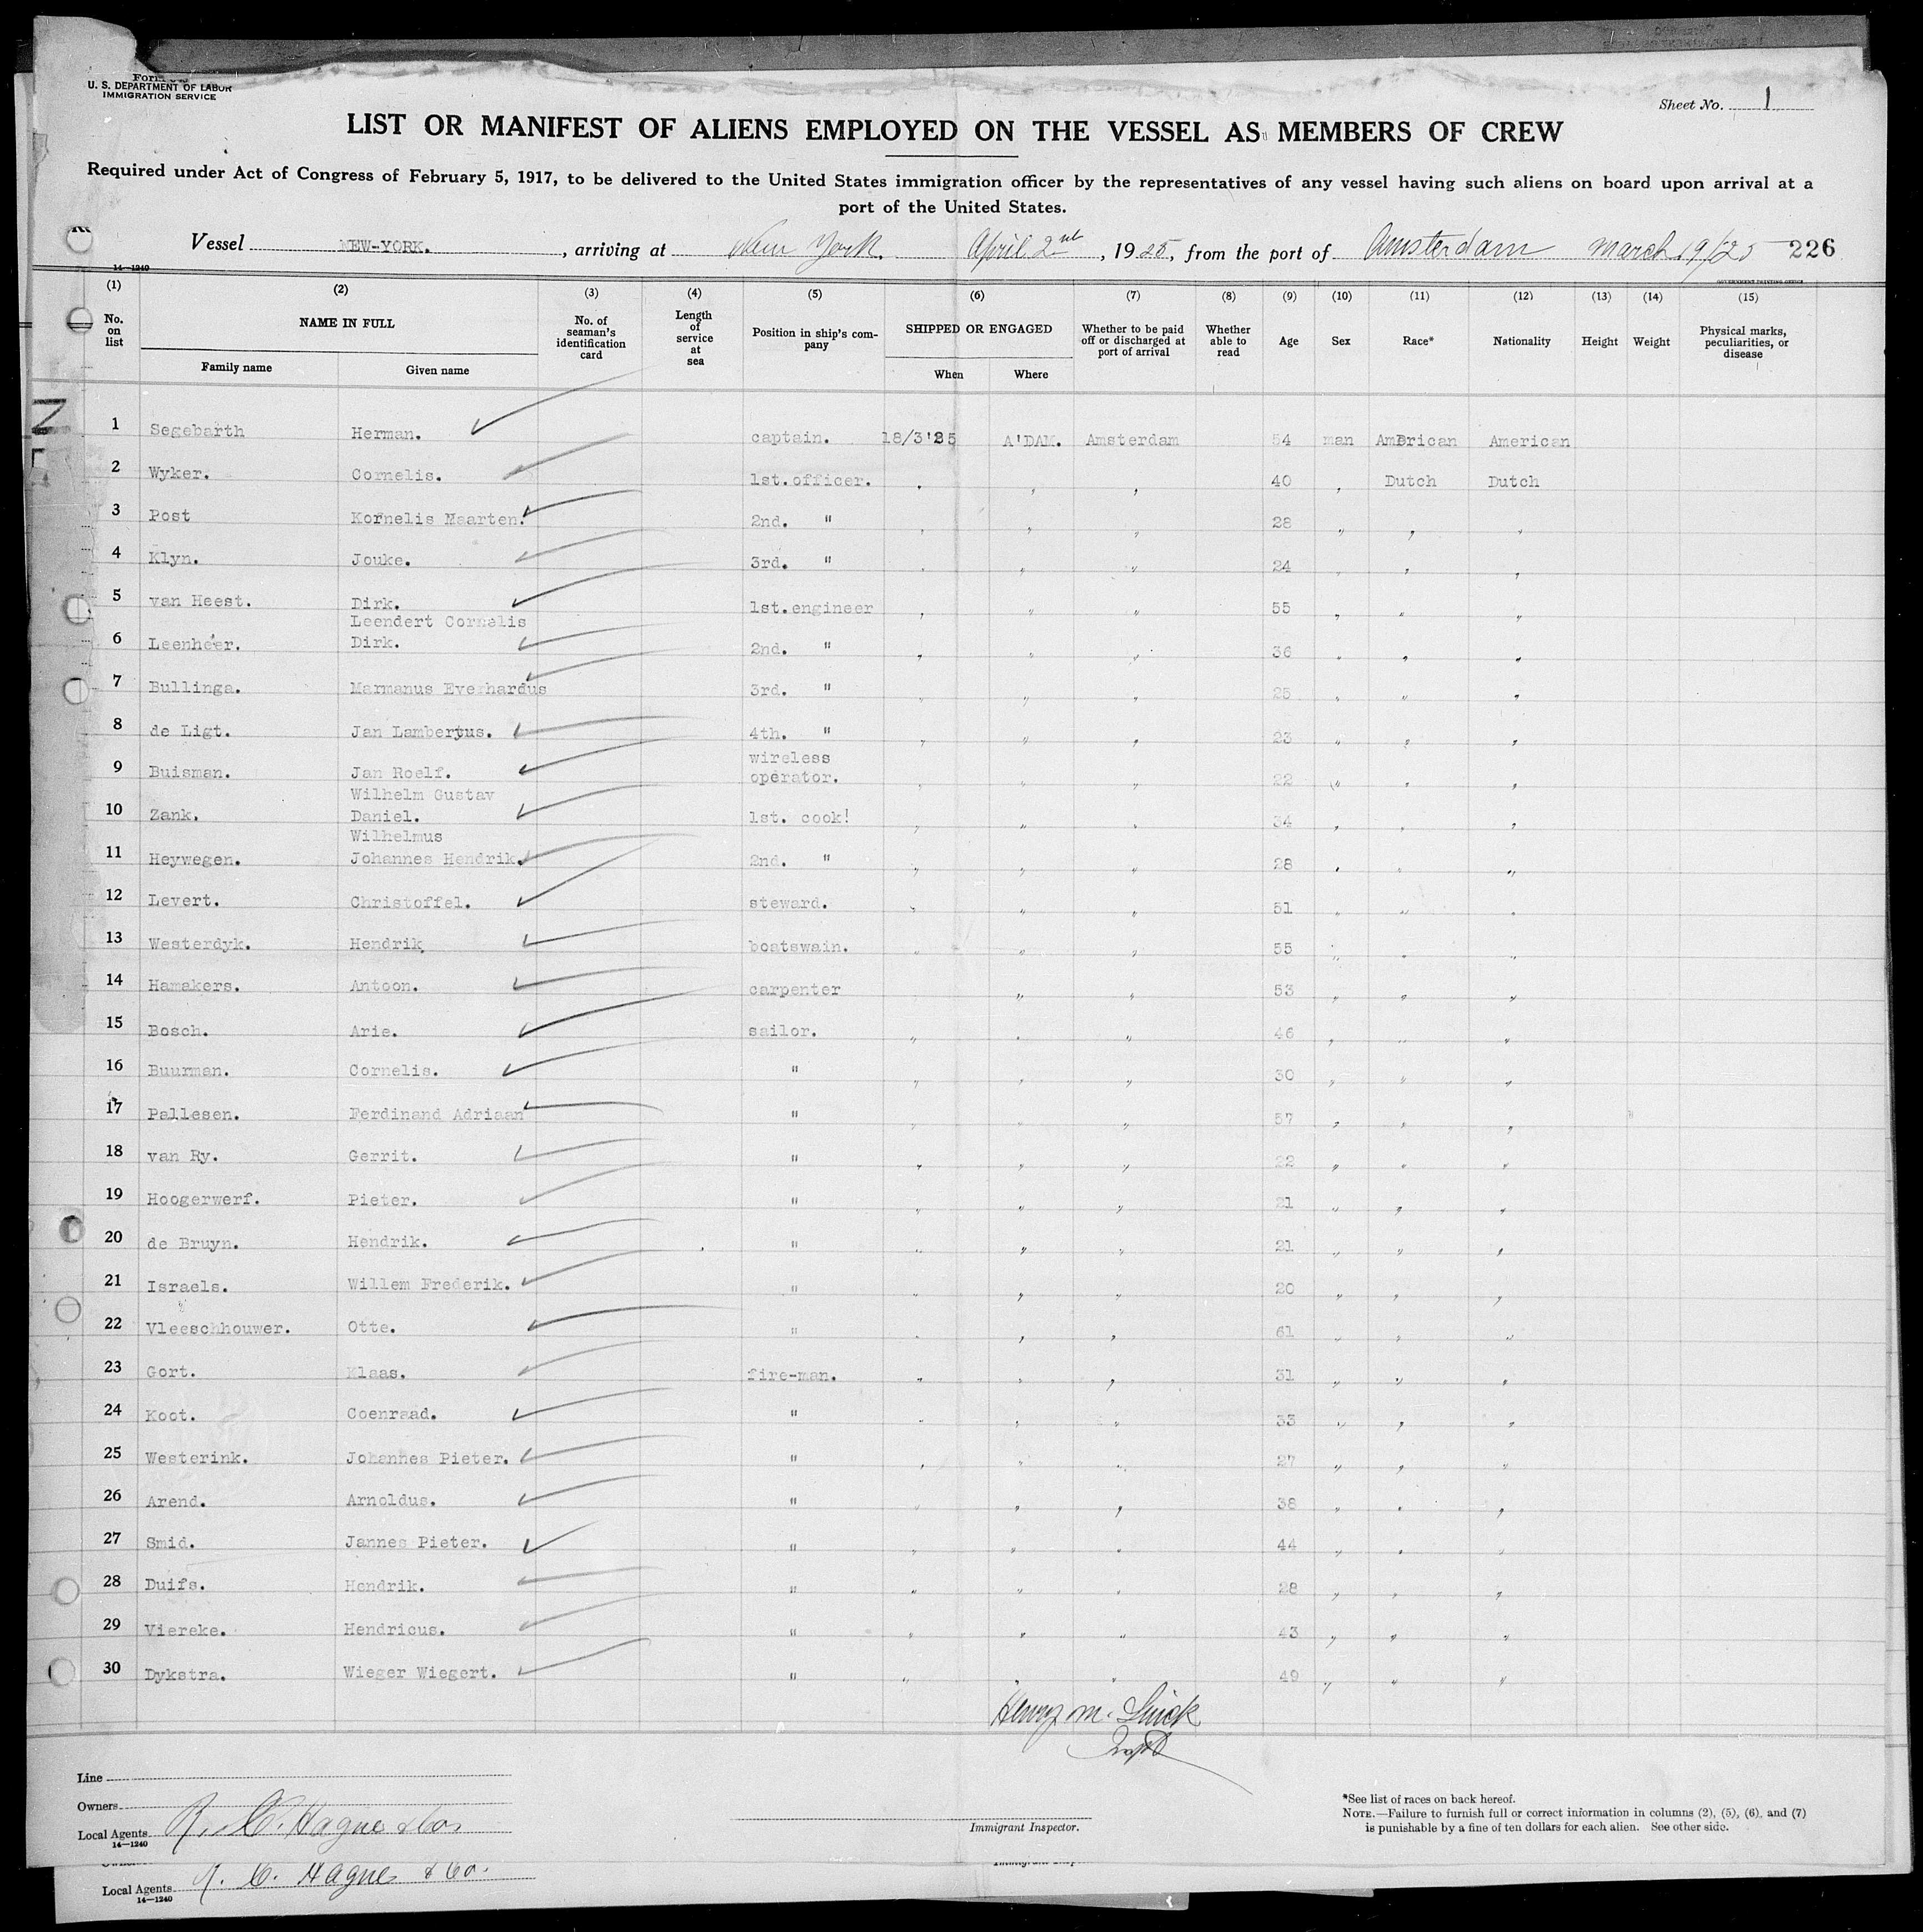 U. S. DEPARTMENT OF LABOR
IMMIGRATION SERVICE
Sheet No. 1
LIST OR MANIFEST OF ALIENS EMPLOYED ON THE VESSEL AS MEMBERS OF CREW
Required under Act of Congress of February 5, 1917, to be delivered to the United States immigration officer by the representatives of any vessel having such aliens on board upon arrival at a
port of the United States.
Vessel NEW-YORK. , arriving at New York. April 2nd , 1925, from the port of Amsterdam March 19/25 226
14—1240
GOVERNMENT PRINTING OFFICE
(1) (2) (3) (4) (5) (6) (7) (8) (9) (10) (11) (12) (13) (14) (15)
No. on list NAME IN FULL No. of seaman's identification card Length of service at sea Position in ship's company SHIPPED OR ENGAGED Whether to be paid off or discharged at port of arrival Whether able to read Age Sex Race* Nationality Height Weight Physical marks, peculiarities, or disease
Family name Given name When Where
1 Segebarth Herman. captain. 18/3'25 A'DAM. Amsterdam 54 man American American
2 Wyker. Cornelis. 1st.officer. 40 Dutch Dutch
3 Post Kornelis Maarten. 2nd. " 28
4 Klyn. Jouke. 3rd. " 24
5 van Heest. Dirk. 1st.engineer 55
Leendert Cornelis
6 Leenheer. Dirk. 2nd. " 36
7 Bullinga. Marmanus Everhardus 3rd. " 25
8 de Ligt. Jan Lambertus. 4th. " 23
wireless
9 Buisman. Jan Roelf. operator. 22
Wilhelm Gustav
10 Zank. Daniel. 1st. cook! 34
Wilhelmus
11 Heywegen. Johannes Hendrik. 2nd. " 28
12 Levert. Christoffel. steward. 51
13 Westerdyk. Hendrik. boatswain. 55
14 Hamakers. Antoon. carpenter 53
15 Bosch. Arie. sailor. 46
16 Buurman. Cornelis. " 30
17 Pallesen. Ferdinand Adriaan " 57
18 van Ry. Gerrit. " 22
19 Hoogerwerf. Pieter. " 21
20 de Bruyn. Hendrik. " 21
21 Israels. Willem Frederik. " 20
22 Vleeschhouwer. Otte. " 61
23 Gort. Klaas. fire-man. 31
24 Koot. Coenraad. " 33
25 Westerink. Johannes Pieter. " 27
26 Arend. Arnoldus. " 38
27 Smid. Jannes Pieter. " 44
28 Duifs. Hendrik. " 28
29 Viereke. Hendricus. " 43
30 Dykstra. Wieger Wiegert. " 49
Henry M.
Line
Owners
Local Agents R. C. Hagne & Co.
14—1240
Immigrant Inspector.
*See list of races on back hereof.
NOTE.—Failure to furnish full or correct information in columns (2), (5), (6), and (7)
is punishable by a fine of ten dollars for each alien. See other side.
Local Agents R. C. Hagne & Co.
14—1240